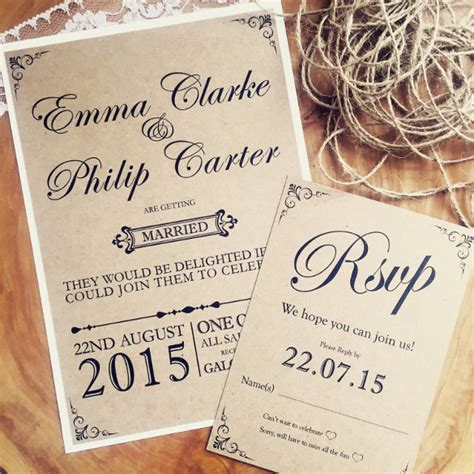 Emma Clarke
&
Philip Carter
ARE GETTING
MARRIED
THEY WOULD BE DELIGHTED IF
COULD JOIN THEM TO CELEB
22ND AUGUST
2015
ONE O
ALL SA
REC
GALG
Rsvp
We hope you can join us!
Please Reply by
22.07.15
Name(s)
Can't wait to celebrate ♡
Sorry, will have to miss all the fun ♡